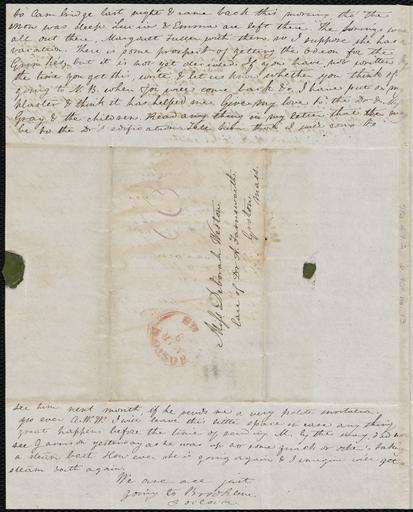 to Cambridge last night & came back this morning tho' the
snow was deep. Lucia & Emma are left there. The Lorings were
all out there, Margaret Fuller with them, so I suppose she has a
vacation. There is some prospect of getting the Odeon for the
but it is not yet decided. If you have not written
the time you get this, write & let us know whether you think of
going to N. B. when you come back. I have put on my
plaster & think it has helped me. Give my love to the Dr. & Mrs
Gray & the children. Read any thing in my letter that there may
be to the Dr's edification. Tell him I think I will come &
Miss Deborah Weston
Care of Dr. A. Farnsworth.
Groton
Mass.
BOSTON
MAR
see him next month, if he sends me a very polite invitation.
yrs ever A. W. W. I will leave this little space in case any thing
great happens before the time of sending it. By the way, I did not
see yesterday as he was up at some quack or other, taking
a steam bath. However she is going again & I imagine will get
steam bath again.
We are all just
going to Brookline